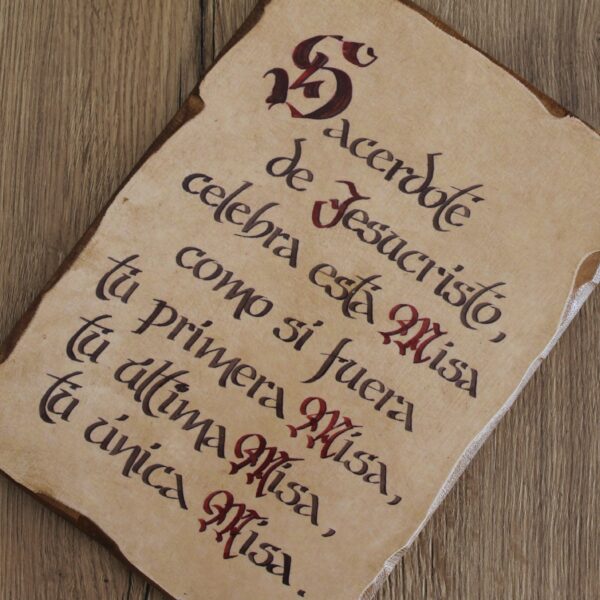 Sacerdote
de Jesucristo,
celebra está Misa
como si fuera
tu primera Misa,
tu última Misa,
tu única Misa.